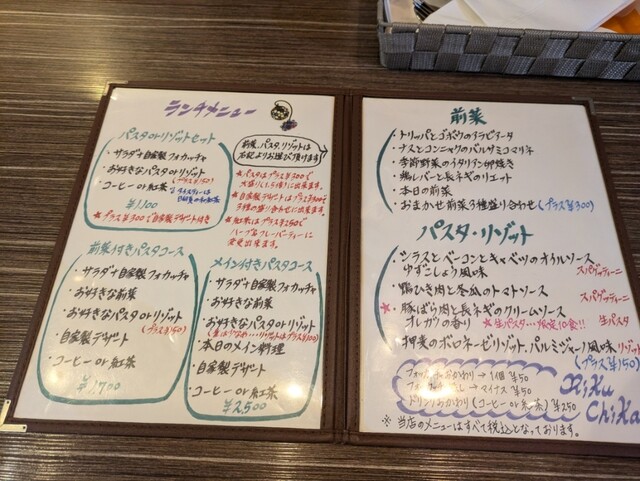 ランチメニュー
パスタorリゾットセット
・サラダ+自家製フォカッチャ
・お好きなパスタorリゾット
(プラス¥150)
・コーヒーor紅茶
¥1,100
★プラス¥300で自家製デザート付き
前菜、パスタ、リゾットは
右記よりお選び頂けます
★パスタはプラス¥300で
大盛り(1.5倍)に出来ます。
★自家製デザートはプラス¥300で
3種の盛り合わせに出来ます。
★紅茶はプラス¥250で
ハーブ&フレーバーティーに
変更出来ます。
前菜付きパスタコース
・サラダ+自家製フォカッチャ
・お好きな前菜
・お好きなパスタorリゾット
(プラス¥150)
・自家製デザート
・コーヒーor紅茶
¥1,700
メイン付きパスタコース
・サラダ+自家製フォカッチャ
・お好きな前菜
・お好きなパスタorリゾット
・本日のメイン料理
・自家製デザート
・コーヒーor紅茶
¥2,500
前菜
・トリッパとゴボウのアラビアータ
・ナスとコンニャクのバルサミコマリネ
・季節野菜のイタリアン卵焼き
・鶏レバーと長ネギのリエット
・本日の前菜
・おまかせ前菜3種盛り合わせ(プラス¥300)
パスタ・リゾット
・シラスとベーコンとキャベツのオイルソース
ゆずこしょう風味 スパゲッティーニ
・鴨ひき肉と冬瓜のトマトソース
スパゲッティーニ
・豚ばら肉と長ネギのクリームソース
オレガノの香り ★生パスタ…限定10食!! 生パスタ
・押麦のボロネーゼリゾット、パルミジャーノ風味 リゾット
(プラス¥150)
フォカッチャおかわり→1個¥50
→マイナス¥50
ドリンクおかわり(コーヒーor紅茶)¥250
RiKu
ChiKa
※当店のメニューはすべて税込となっております。